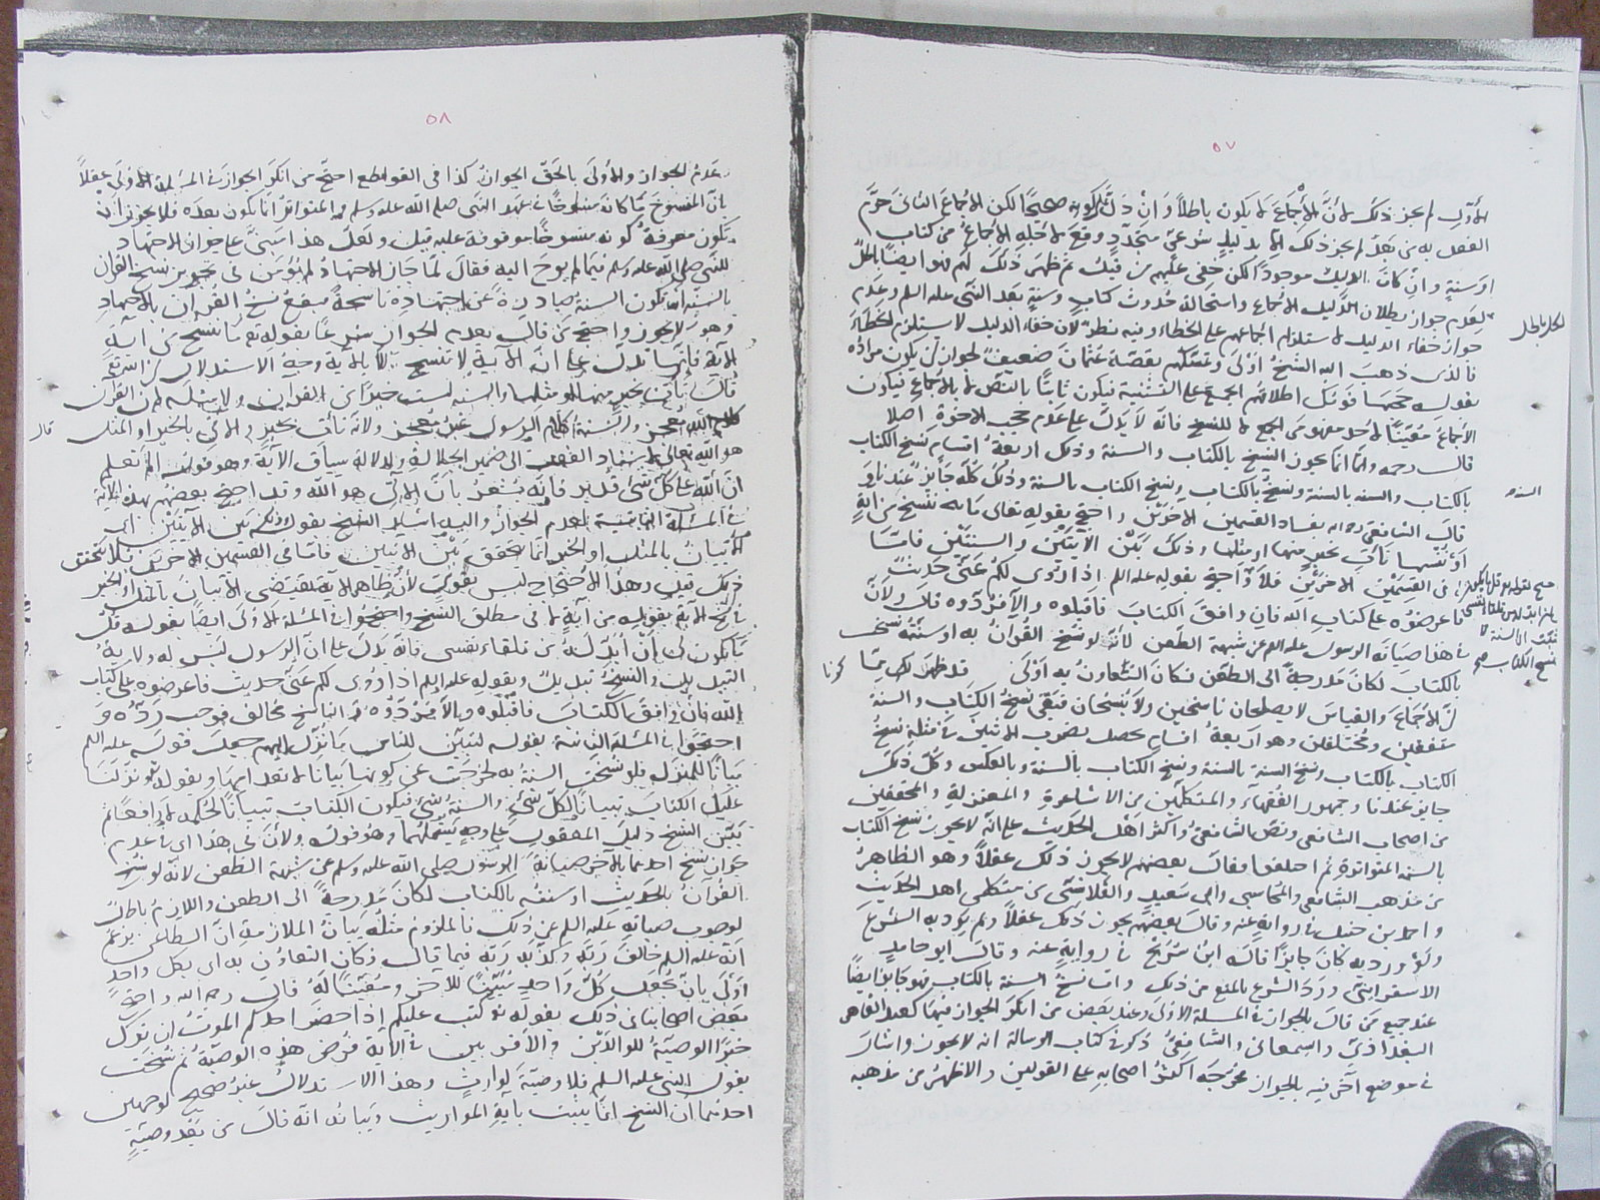 ٥٧
الأول لم يجز ذلك لأن الإجماع لا يكون باطلا وإن دل كونه صحيحا لكن الإجماع الثاني حرم
الفعل به من بعد لم يجز ذلك إلا بدليل شرعي متجدد وقع لأجله الإجماع من كتاب
أو سنة وإن كان الدليل موجودا لكن خفي عليهم من قبل ثم ظهر ذلك لهم فهو أيضا باطل
لعدم جواز بطلان الدليل الإجماع واستحالة حدوث كتاب وسنة بعد النبي عليه السلم وعدم
جواز خفاء الدليل لاستلزام اجماعهم على الخطاء وفيه نظر لأن خفاء الدليل لا يستلزم الخطاء
فالذي ذهب إليه الشيخ أولى وتمسكهم بقصة عثمان ضعيف لجواز أن يكون مراده
بقوله حجبها قومك اطلاقهم الجمع على التثنية فيكون ثابتا بالنص لا بالإجماع فيكون
الإجماع لأحد مفهومي الجمع لا للنسخ فانه لا يدل على عدم حجب الاخوة اصلا
قال رحمه وانما يجوز النسخ بالكتاب والسنة وذلك أربعة أقسام نسخ الكتاب
بالكتاب والسنة بالسنة ونسخ بالكتاب ونسخ الكتاب بالسنة وذلك كله جائز عندنا و
قال الشافعي رحمه الله بفساد القسمين الاخرين واحتج بقوله تعالى ما ننسخ من آية
أو ننسها نأت بخير منها أو مثلها وذلك يكون بين الآيتين والسنتين فاما
في القسمين الاخرين فلا واحتج بقوله عليه السلم اذا روي لكم عني حديث
فاعرضوه على كتاب الله فان وافق الكتاب فاقبلوه وإلا فردوه قال ولأن
في هذا صيانة الرسول عليه السلم عن شبهة الطعن لأنه لو نسخ القرآن به أو سنته نسخت
بالكتاب لكان مدرجة الى الطعن فكان التعاون به أولى قد ظهر لك بما
أن الإجماع والقياس لا يصلحان ناسخين ولا ينسخان فبقي نسخ الكتاب والسنة
متفقين ومختلفين وهو أربعة أقسام يحصل بضرب الاثنين في مثله نسخ
الكتاب بالكتاب ونسخ السنة بالسنة ونسخ الكتاب بالسنة وبالعكس وكل ذلك
جايز عندنا وجمهور الفقهاء والمتكلمين من الاشاعرة والمعتزلة والمحققين
من اصحاب الشافعي ونص الشافعي وأكثر أهل الحديث على أنه لا يجوز نسخ الكتاب
بالسنة المتواترة ثم اختلفوا فقال بعضهم لا يجوز ذلك عقلا وهو الظاهر
من مذهب الشافعي والمحاسبي وأبي سعيد والقلانسي من متكلمي اهل الحديث
واحمد بن حنبل في رواية عنه وقال بعضهم يجوز ذلك عقلا ولم يرد به الشرع
ولو ورد به كان جايزا قاله ابن سريج في رواية عنه وقال أبو حامد
الاسفرايني ورد الشرع بالمنع من ذلك واما نسخ السنة بالكتاب فهو جايز ايضا
عند جميع من قال بالجواز في المسئلة الأولى وعند بعض من أنكر الجواز فيها كعبد القاهر
البغدادي والسمعاني والشافعي ذكر في كتاب الرسالة انه لا يجوز واشار
في موضع آخر فيه بالجواز فخرجه أكثر اصحابه على القولين والاظهر من مذهبه
الكل باطل
السنة
كرنا
٥٨
عدم الجواز والأولى بالحق الجواز كذا في القواطع احتج من انكر الجواز في المسئلة الأولى عقلا
بأن المنسوخ ما كان منسوخا في عهد النبي صلى الله عليه وسلم والمتواتر انما يكون بعده فلا يجوز أن
يكون معرفة كونه منسوخا موقوفة عليه قبل ولعل هذا مبني على جواز الاجتهاد
للنبي صلى الله عليه وسلم فيما لم يوح اليه فقال لما جاز الاجتهاد لم يؤمن في تجويز نسخ القرآن
بالسنة أن يكون السنة صادرة عن اجتهاده ناسخة فيقع نسخ القرآن بالاجتهاد
وهو لا يجوز واحتج من قال بعدم الجواز شرعا بقوله تع ما ننسخ من آية
الآية فإنها تدل على أن الآية لا تنسخ إلا بالآية وجه الاستدلال أن الله تع
قال نأت بخير منها أو مثلها والسنة ليست خيرا من القرآن ولا مثله لأن القرآن
كلام الله معجز والسنة كلام الرسول غير معجز ولأنه نأت بخير والآتي بالخير أو المثل
هو الله تعالى لاسناد الفعل الى ضمير الجلالة ولدلالة سياق الآية وهو قوله ألم تعلم
ان الله على كل شئ قدير فإنه يشعر بأن الآتي هو الله وقد احتج بعضهم بهذه الآية
في المسئلة الثانية لعدم الجواز واليه اشار الشيخ بقوله وذلك بين الآيتين أي
الإتيان بالمثل أو الخير انما يتحقق بين الآيتين فاما في القسمين الاخرين فلا يتحقق
ذلك فيه وهذا الاحتجاج ليس بقوي لأن ظاهر الآية يقتضي الاتيان بالمثل أو الخير
في نسخ الآية بقوله من آية لا في مطلق النسخ واحتجوا في المسئلة الأولى ايضا بقوله قل
ما يكون لي أن أبدله من تلقاء نفسي فانه يدل على أن الرسول ليس له ولاية
التبديل والنسخ تبديل وبقوله عليه السلم اذا روي لكم عني حديث فاعرضوه على كتاب
الله فان وافق الكتاب فاقبلوه وإلا فردوه والناسخ مخالف فوجب رده و
احتجوا في المسئلة الثانية بقوله لتبين للناس ما نزل اليهم جعل قوله عليه السلم
بيانا للمنزل فلو نسخت السنة به لخرجت عن كونها بيانا لانعدامها وبقوله ونزلنا
عليك الكتاب تبيانا لكل شئ والسنة شئ فيكون الكتاب تبيانا لحكمه لا رافعا ثم
بين الشيخ دليل المعقول على وجه يشملهما وهو قوله ولأن في هذا اي في عدم
جواز نسخ احدهما بالآخر صيانة الرسول صلى الله عليه وسلم عن شبهة الطعن لأنه لو نسخ
القرآن بالحديث أو سنته بالكتاب لكان مدرجة الى الطعن واللازم باطل
لوجوب صيانته عليه السلم عن ذلك فالملزوم مثله بيان الملازمة ان الطاعن يزعم
انه عليه السلم خالف ربه وكذبه ربه فيما قال فكان التعاون به اي بكل واحد
أولى بأن يجعل كل واحد مبينا للآخر ومعينا له قال رحمه الله واحتج
بعض اصحابنا في ذلك بقوله تع كتب عليكم إذا حضر احدكم الموت ان ترك
خيرا الوصية للوالدين والأقربين في الآية فرض هذه الوصية ثم نسخت
بقول النبي عليه السلم فلا وصية لوارث وهذا الاستدلال غير صحيح لوجهين
احدهما أن النسخ انما يثبت بآية المواريث وبيانه انه قال من بعد وصية
قال